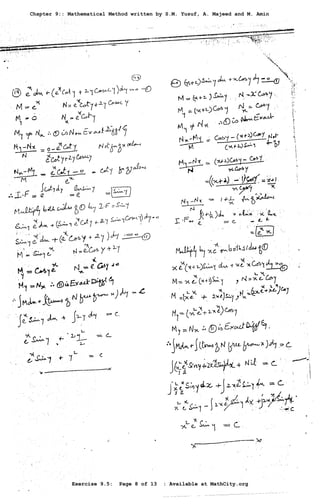 Chapter 9:: Mathematical Method written by S.M. Yusuf, A. Majeed and M. Amin
(19) eˣdx + (eˣCoty + 2yCosecy)dy = 0 —①
M = eˣ N = eˣCoty + 2yCosecy
My = 0 Nx = eˣCoty
My ≠ Nx ∴ ① is Non Exact Diff Eq
My - Nx / N = 0 - eˣCoty / eˣCoty + 2yCosecy
Nx - My / M = eˣCoty - 0 / eˣ = Coty
∴ I.F = e^∫Cotydy = e^lnSiny = Siny
Multiply both sides of ① by I.F = Siny
eˣSiny dx + (Siny eˣCoty + 2y Siny Cosecy)dy = 0
Siny eˣ dx + (eˣCosy + 2y)dy = 0 —②
M = Siny eˣ N = eˣCosy + 2y
M = Cosy eˣ N = eˣCosy + 0
My = Nx ∴ ② is Exact Diff Eq
∫Mdx + ∫(terms of N free from x)dy = C
∫eˣSiny dx + ∫2y dy = C
eˣSiny + 2y²/2 = C
eˣSiny + y² = C
(20) (x+2)Siny dx + xCosy dy = 0 —①
M = (x+2)Siny , N = xCosy
My = (x+2)Cosy Nx = Cosy
My ≠ Nx ∴ ① is Non Exact
Nx - My / M = Cosy - (x+2)Cosy / (x+2)Siny
My - Nx / N = (x+2)Cosy - Cosy / xCosy
= ((x+2) - 1)Cosy / xCosy = x+1 / x
My - Nx / N = 1 + 1/x
I.F = e^∫(1+1/x)dx = e^x+lnx = eˣ x
Multiply by xeˣ on both sides of ①
xeˣ(x+2)Siny dx + xeˣ xCosy dy = 0 —②
M = xeˣ(x+2)Siny , N = x²eˣCosy
My = (x²eˣ + 2xeˣ)Cosy
My = Nx ∴ ② is Exact Diff Eq.
∴ ∫Mdx + ∫(terms of N free from x)dy = C
∫(x²eˣSiny + 2xeˣSiny)dx + Nil = C
∫x²eˣSiny dx + ∫2xeˣSiny dx = C
x²eˣSiny - ∫2xeˣSiny dx + ∫2xeˣSiny dx = C
x²eˣSiny = C
Exercise 9.5: Page 8 of 13 : Available at MathCity.org